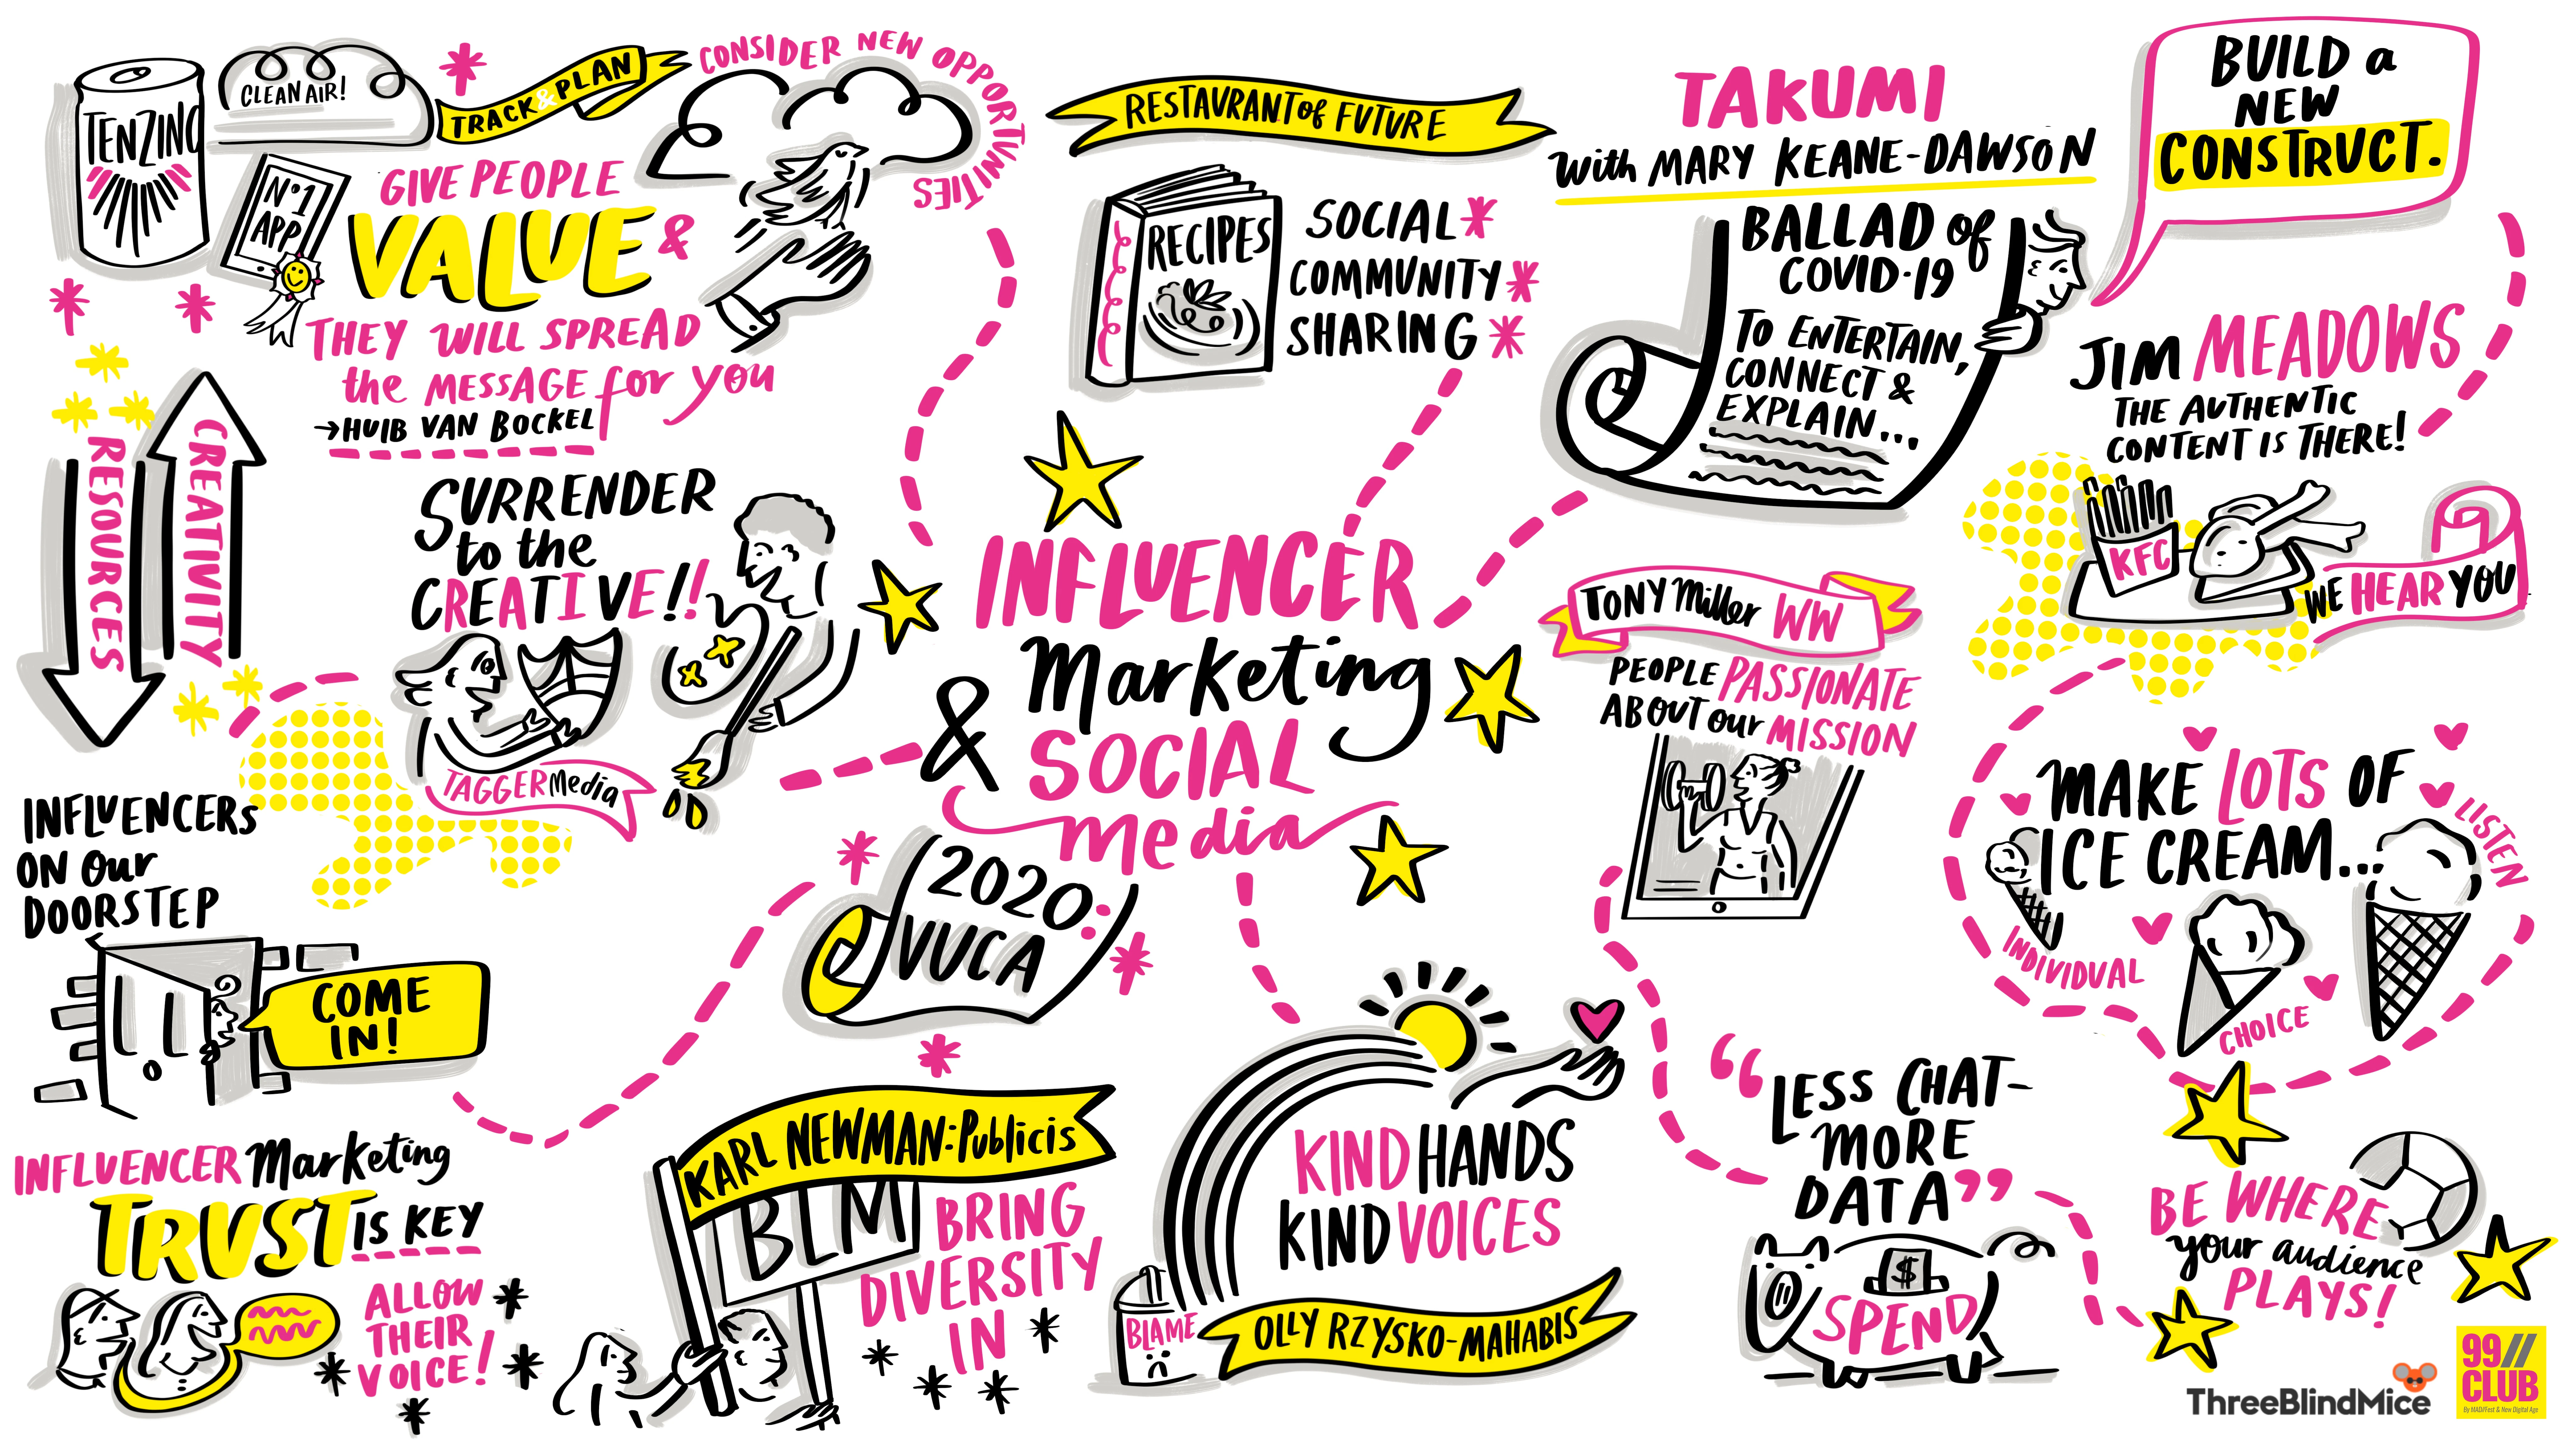 TENZING
CLEAN AIR!
TRACK & PLAN
CONSIDER NEW OPPORTUNITIES
Nº1
APP
GIVE PEOPLE
VALUE &
THEY WILL SPREAD
the MESSAGE for you
→HUIB VAN BOCKEL
RESOURCES
CREATIVITY
SURRENDER
to the
CREATIVE!!
TAGGER Media
INFLUENCERS
ON our
DOORSTEP
COME
IN!
INFLUENCER Marketing
TRUST IS KEY
ALLOW
THEIR
VOICE!
RESTAURANT of FUTURE
RECIPES
SOCIAL
COMMUNITY
SHARING
INFLUENCER
Marketing
& SOCIAL
media
2020:
VUCA
KARL NEWMAN: Publicis
BLM
BRING
DIVERSITY
IN
KIND HANDS
KIND VOICES
BLAME
OLLY RZYSKO-MAHABIS
TAKUMI
with MARY KEANE-DAWSON
BALLAD of
COVID-19
TO ENTERTAIN,
CONNECT &
EXPLAIN...
BUILD a
NEW
CONSTRUCT.
JIM MEADOWS
THE AUTHENTIC
CONTENT IS THERE!
KFC
WE HEAR YOU
TONY Miller WW
PEOPLE PASSIONATE
ABOUT our MISSION
MAKE LOTS OF
ICE CREAM...
LISTEN
INDIVIDUAL
CHOICE
“LESS CHAT-
MORE
DATA”
$
SPEND
BE WHERE
your audience
PLAYS!
ThreeBlindMice
99//
CLUB
By MAD//Fest & New Digital Age